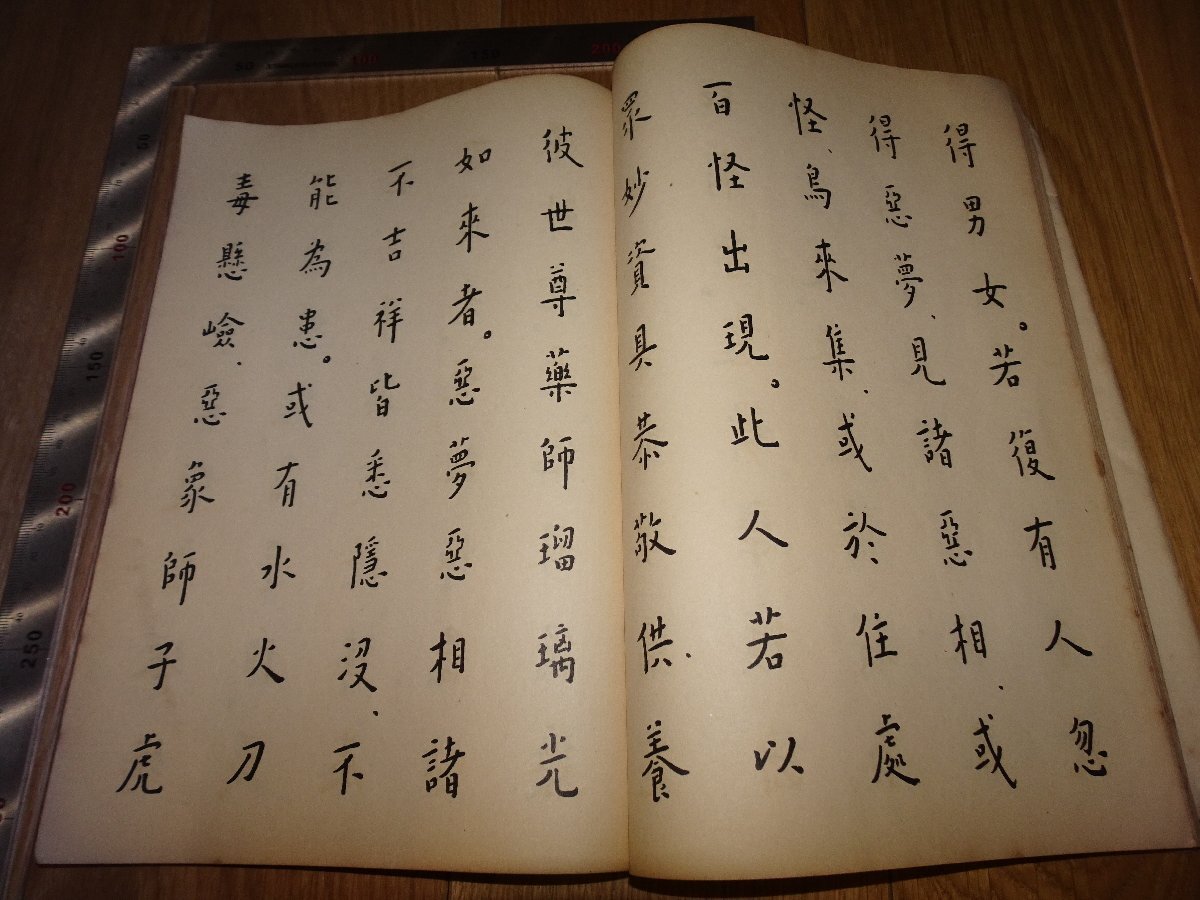 得男女。若復有人忽
得惡夢、見諸惡相、或
怪、鳥來集、或於住處
百怪出現。此人若以
眾妙資具恭敬供、養
彼世尊藥師瑠璃光
如來者。惡夢惡相諸
不吉祥皆悉隱沒、不
能為患。或有水火刀
毒懸嶮、惡象師子虎
50 100 150 200
50
100
150
200
250